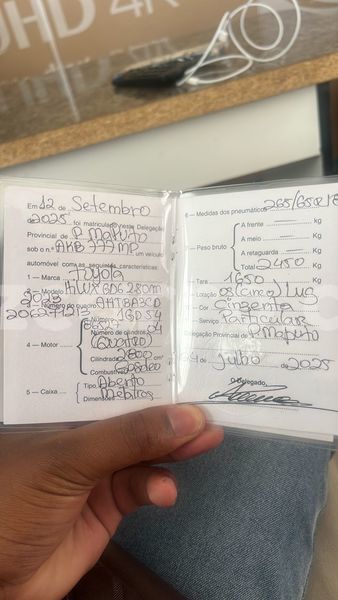 UHD 4K
Em 12 de Setembro
de 2025, foi matriculado nesta Delegação
Provincial de P. Maputo
sob o n.º AKB 779 MP, um veículo
automóvel com as seguintes características
1 — Marca Toyota
2 — Modelo HILUX GD6 280M
Número do quadro AHTBA3CD
4 — Motor
Número de cilindros 04
(Quatro)
Cilindrada 2800 cm³
Combustível Gasóleo
5 — Caixa
Tipo Aberto
Dimensões Metros
6 — Medidas dos pneumáticos 265/65R18
7 — Peso bruto
A frente Kg
A meio Kg
A retaguarda Kg
Total 2450 Kg
Tara 1650 Kg
Lotação 05 (Cinco) Lug
Cor Cinzenta
Serviço Particular
Delegação Provincial de P. Maputo
de Julho de 2025
O Delegado,